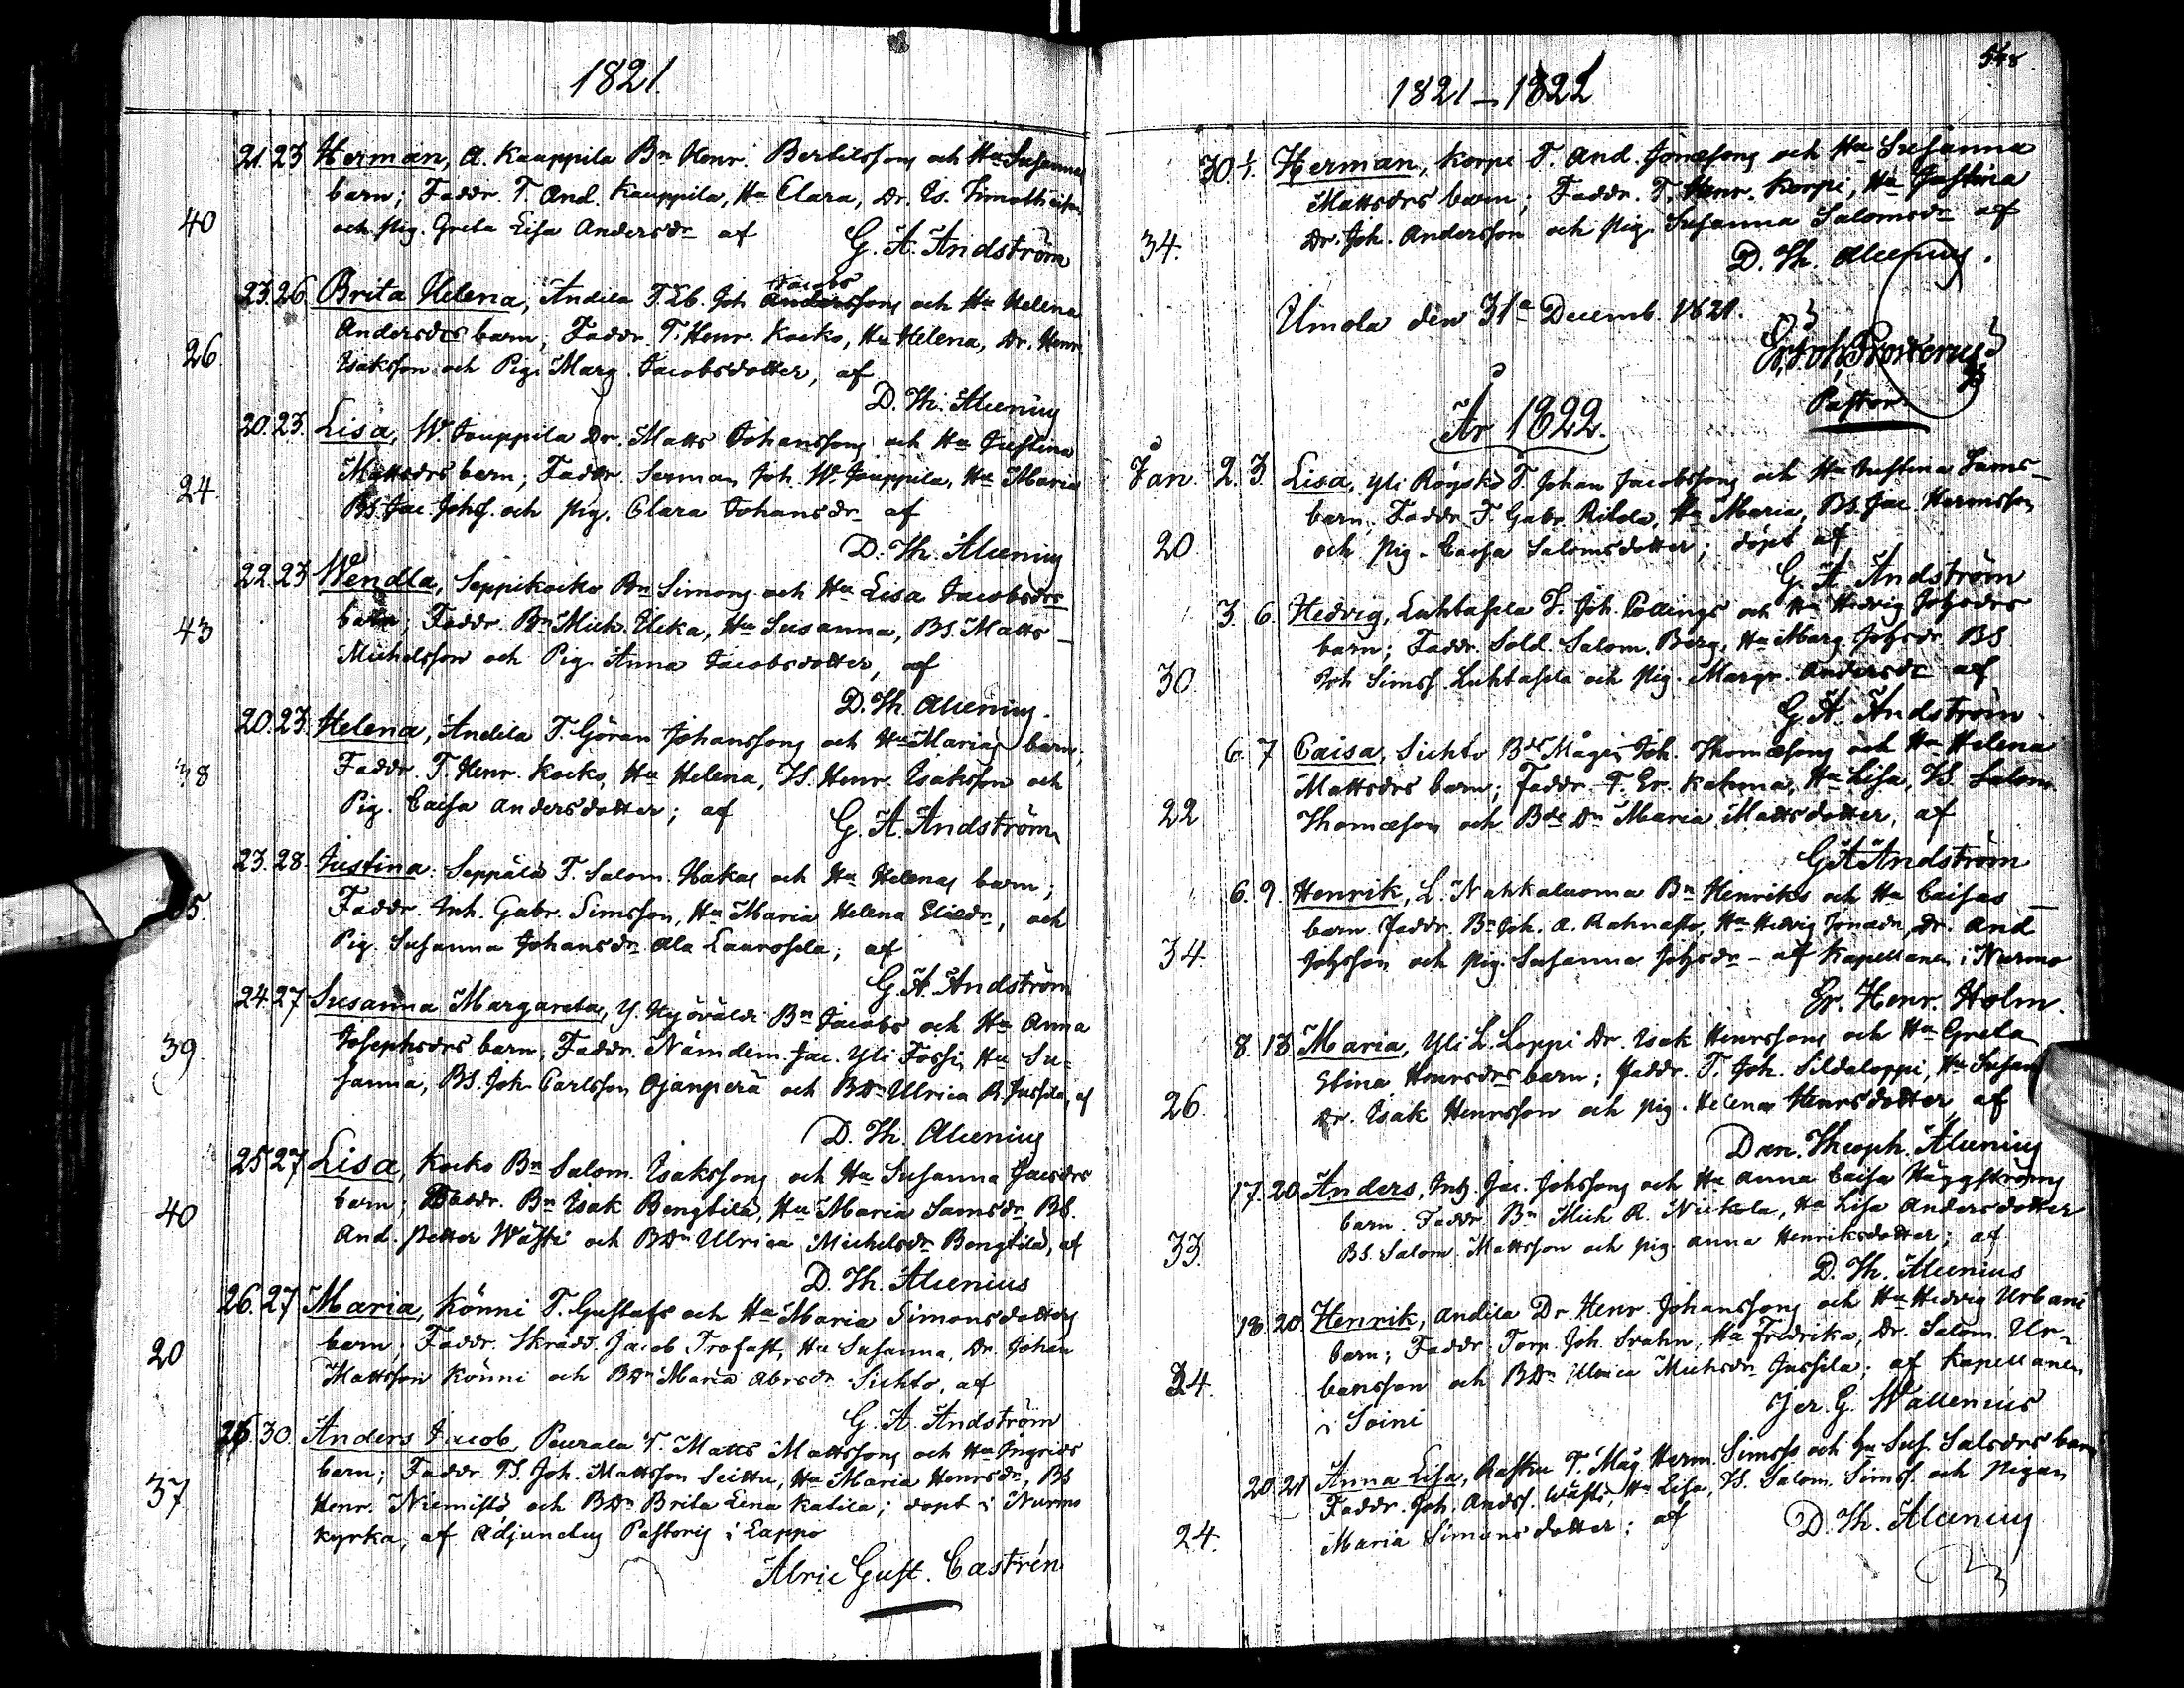 1821.
21. 23 Herman, A. Kauppila Bn Henr. Bertilssons och Hu Susannas
barn; Faddr. T. And. Kauppila, Hu Clara, Dr. Es. Timotheiss.
40 och Pig. Greta Lisa Andersdr af
G. A. Andström
Jacobs
23. 26. Brita Helena, Andila T. Joh. Anderssons och Hu Helena
Andersdrs barn; Faddr. T. Henr. Kocko, Hu Helena, Dr. Henr.
26. Isaksson och Pig. Marg. Jacobsdotter, af
D. Th. Alcenius
20. 23. Lisa, W. Jouppila Dr. Matts Johanssons och Hu Justina
Mattsdrs barn; Faddr. Joh. W. Jouppila, Hu Maria
24. BS. Jac. Johss. och Pig. Clara Johansdr af
D. Th. Alcenius
22. 23 Wendla, Seppikocko Bn Simons och Hu Lisa Jacobsdrs
43 barn; Faddr. Bn Mich. Ucka, Hu Susanna, BS. Matts
Michelsson och Pig. Anna Jacobsdotter, af
D. Th. Alcenius.
20. 23. Helena, Andila T. Göran Johanssons och Hu Marias barn;
38 Faddr. T. Henr. Kocko, Hu Helena, TS. Henr. Isaksson och
Pig. Caisa Andersdotter; af
G. A. Andström
23. 28. Justina. Seppälä T. Salom. Hakas och Hu Helenas barn;
35. Faddr. Inh. Gabr. Simsson, Hu Maria Helena Eliædr, och
Pig. Susanna Johansdr Ala Laurosela; af
G. A. Andström
24. 27 Susanna Margareta, Y. Hyövälti Bn Jacobs och Hu Anna
39. Josephsdrs barn; Faddr. Nämdem. Jac. Yli Fossi, Hu Su-
sanna, BS. Joh. Carlsson Ojanperä och BDr Ulrica R. Jussila, af
D. Th. Alcenius
25. 27 Lisa, Kocko Bn Salom. Isakssons och Hu Susanna Jacsdrs
40 barn; Faddr. Bn Isak Bengtila, Hu Maria Samsdr, BS.
And. Petter Wästi och BDr Ulrica Michelsdr Bengtila, af
D. Th. Alcenius
26. 27 Maria, Könni T. Gustafs och Hu Maria Simonsdotters
20 barn; Faddr. Skrädd. Jacob Trofast, Hu Susanna, Dr. Johan
Mattsson Könni och BDr Maria Abrsdr Sichto, af
G. A. Andström
26. 30. Anders Jacob, Peurala T. Matts Mattssons och Hu Ingrids
barn; Faddr. TS. Joh. Mattsson Seittu, Hu Maria Henrsdr, BS
37 Henr. Niemistö och BDr Brita Lena Katila; döpt i Nurmo
kyrka, af Adjunctus Pastoris i Lappo
Alric Gust. Castrén
548.
1821 – 1822
30. 1/1. Herman, Korpi T. And. Jonæsons och Hu Susanna
Mattsdrs barn; Faddr. T. Henr. Korpi, Hu Justina
34. Dr. Joh. Andersson och Pig. Susanna Salomsdr af
D. Th. Alcenius.
Ilmola den 31a Decemb. 1821.
Pastor
År 1822.
Jan. 2. 3. Lisa, Yli Röyskö T. Johan Jacobssons och Hu Justina Sams
barn; Faddr. T. Gabr. Ritola, Hu Maria, BS. Jac. Hermsson
20. och Pig. Caisa Salomsdotter; döpt af
G. A. Andström
3. 6. Hedvig, Luhtasela T. Joh. Pollings och Hu Hedvig Johsdrs
barn; Faddr. Sold. Salom. Berg, Hu Marg. Johsdr, BS
30. Joh Simss. Luhtasela och Pig. Margr. Andersdr af
G. A. Andström
6. 7 Caisa, Sichto Bde Mågen Joh. Thomæsons och Hu Helena
Mattsdrs barn; Faddr. T. Er. Kahma, Hu Lisa, TS. Salom.
22 Thomæson och Bde Dr Maria Mattsdotter, af
G A Andström
6. 9. Henrik, L. Nahkaluoma Bn Henriks och Hu Caisas
barn. Faddr. Bn Joh. A. Rahnasto, Hu Hedvig Jonædr, Dr. And
34. Johsson och Pig. Susanna Johsdr – af Kapellanen i Nurmo
Er. Henr. Holm.
8. 13. Maria, Yli L. Loppi Dr. Isak Henrssons och Hu Greta
Stina Henrsdrs barn; Faddr. T. Joh. Sildaloppi, Hu Susan
26. Dr. Isak Henrsson och Pig. Helena Henrsdotter, af
Dan. Theoph. Alcenius
17. 20 Anders, Inh. Jac. Johssons och Hu Anna Caisa Häggströms
barn. Faddr. Bn Mich A. Nickola, Hu Lisa Andersdotter
33. BS. Salom. Mattsson och Pig. Anna Henriksdotter; af
D. Th. Alcenius
18. 20 Henrik, Andila Dr. Henr. Johanssons och Hu Hedvig Urbani
barn; Faddr. Torp. Joh. Svahn, Hu Fredrika, Dr. Salom. Ur-
34. bansson och BDr Ulrica Michsdr Jussila; af Kapellanen
i Soini
Jer. G. Wallenius
20. 21 Anna Lisa, Rasku T. Måg Herm. Simss och Hu Sus. Salsdrs barn
Faddr. Joh. Andss. Wästi, Hu Lisa, TS. Salom. Simss. och Pigan
24. Maria Simonsdotter; af
D. Th. Alcenius